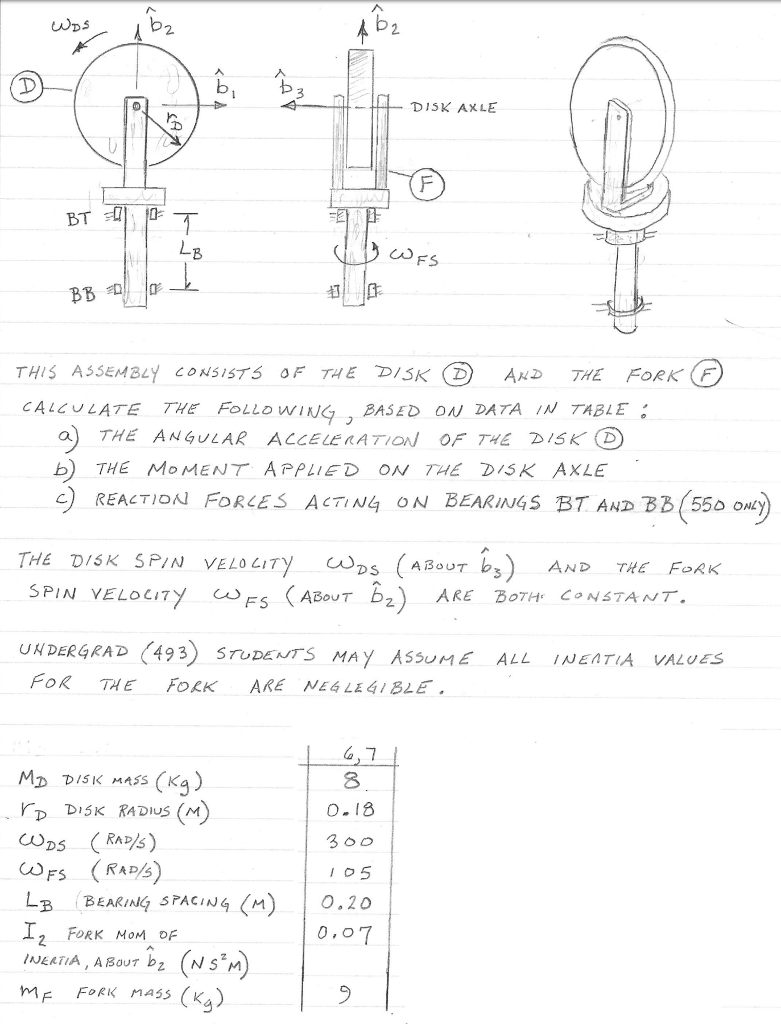 ωDS
b̂2
b̂2
D
b̂1
b̂3
DISK AXLE
rD
F
BT
LB
ωFS
BB
THIS ASSEMBLY CONSISTS OF THE DISK D AND THE FORK F
CALCULATE THE FOLLOWING, BASED ON DATA IN TABLE:
a) THE ANGULAR ACCELERATION OF THE DISK D
b) THE MOMENT APPLIED ON THE DISK AXLE
c) REACTION FORCES ACTING ON BEARINGS BT AND BB (550 ONLY)
THE DISK SPIN VELOCITY ωDS (ABOUT b̂3) AND THE FORK
SPIN VELOCITY ωFS (ABOUT b̂2) ARE BOTH CONSTANT.
UNDERGRAD (493) STUDENTS MAY ASSUME ALL INERTIA VALUES
FOR THE FORK ARE NEGLEGIBLE.
6,7
MD DISK MASS (Kg) 8
rD DISK RADIUS (M) 0.18
ωDS (RAD/S) 300
ωFS (RAD/S) 105
LB (BEARING SPACING (M) 0.20
I2 FORK MOM OF 0.07
INERTIA, ABOUT b̂2 (NS²M)
mF FORK MASS (Kg) 9